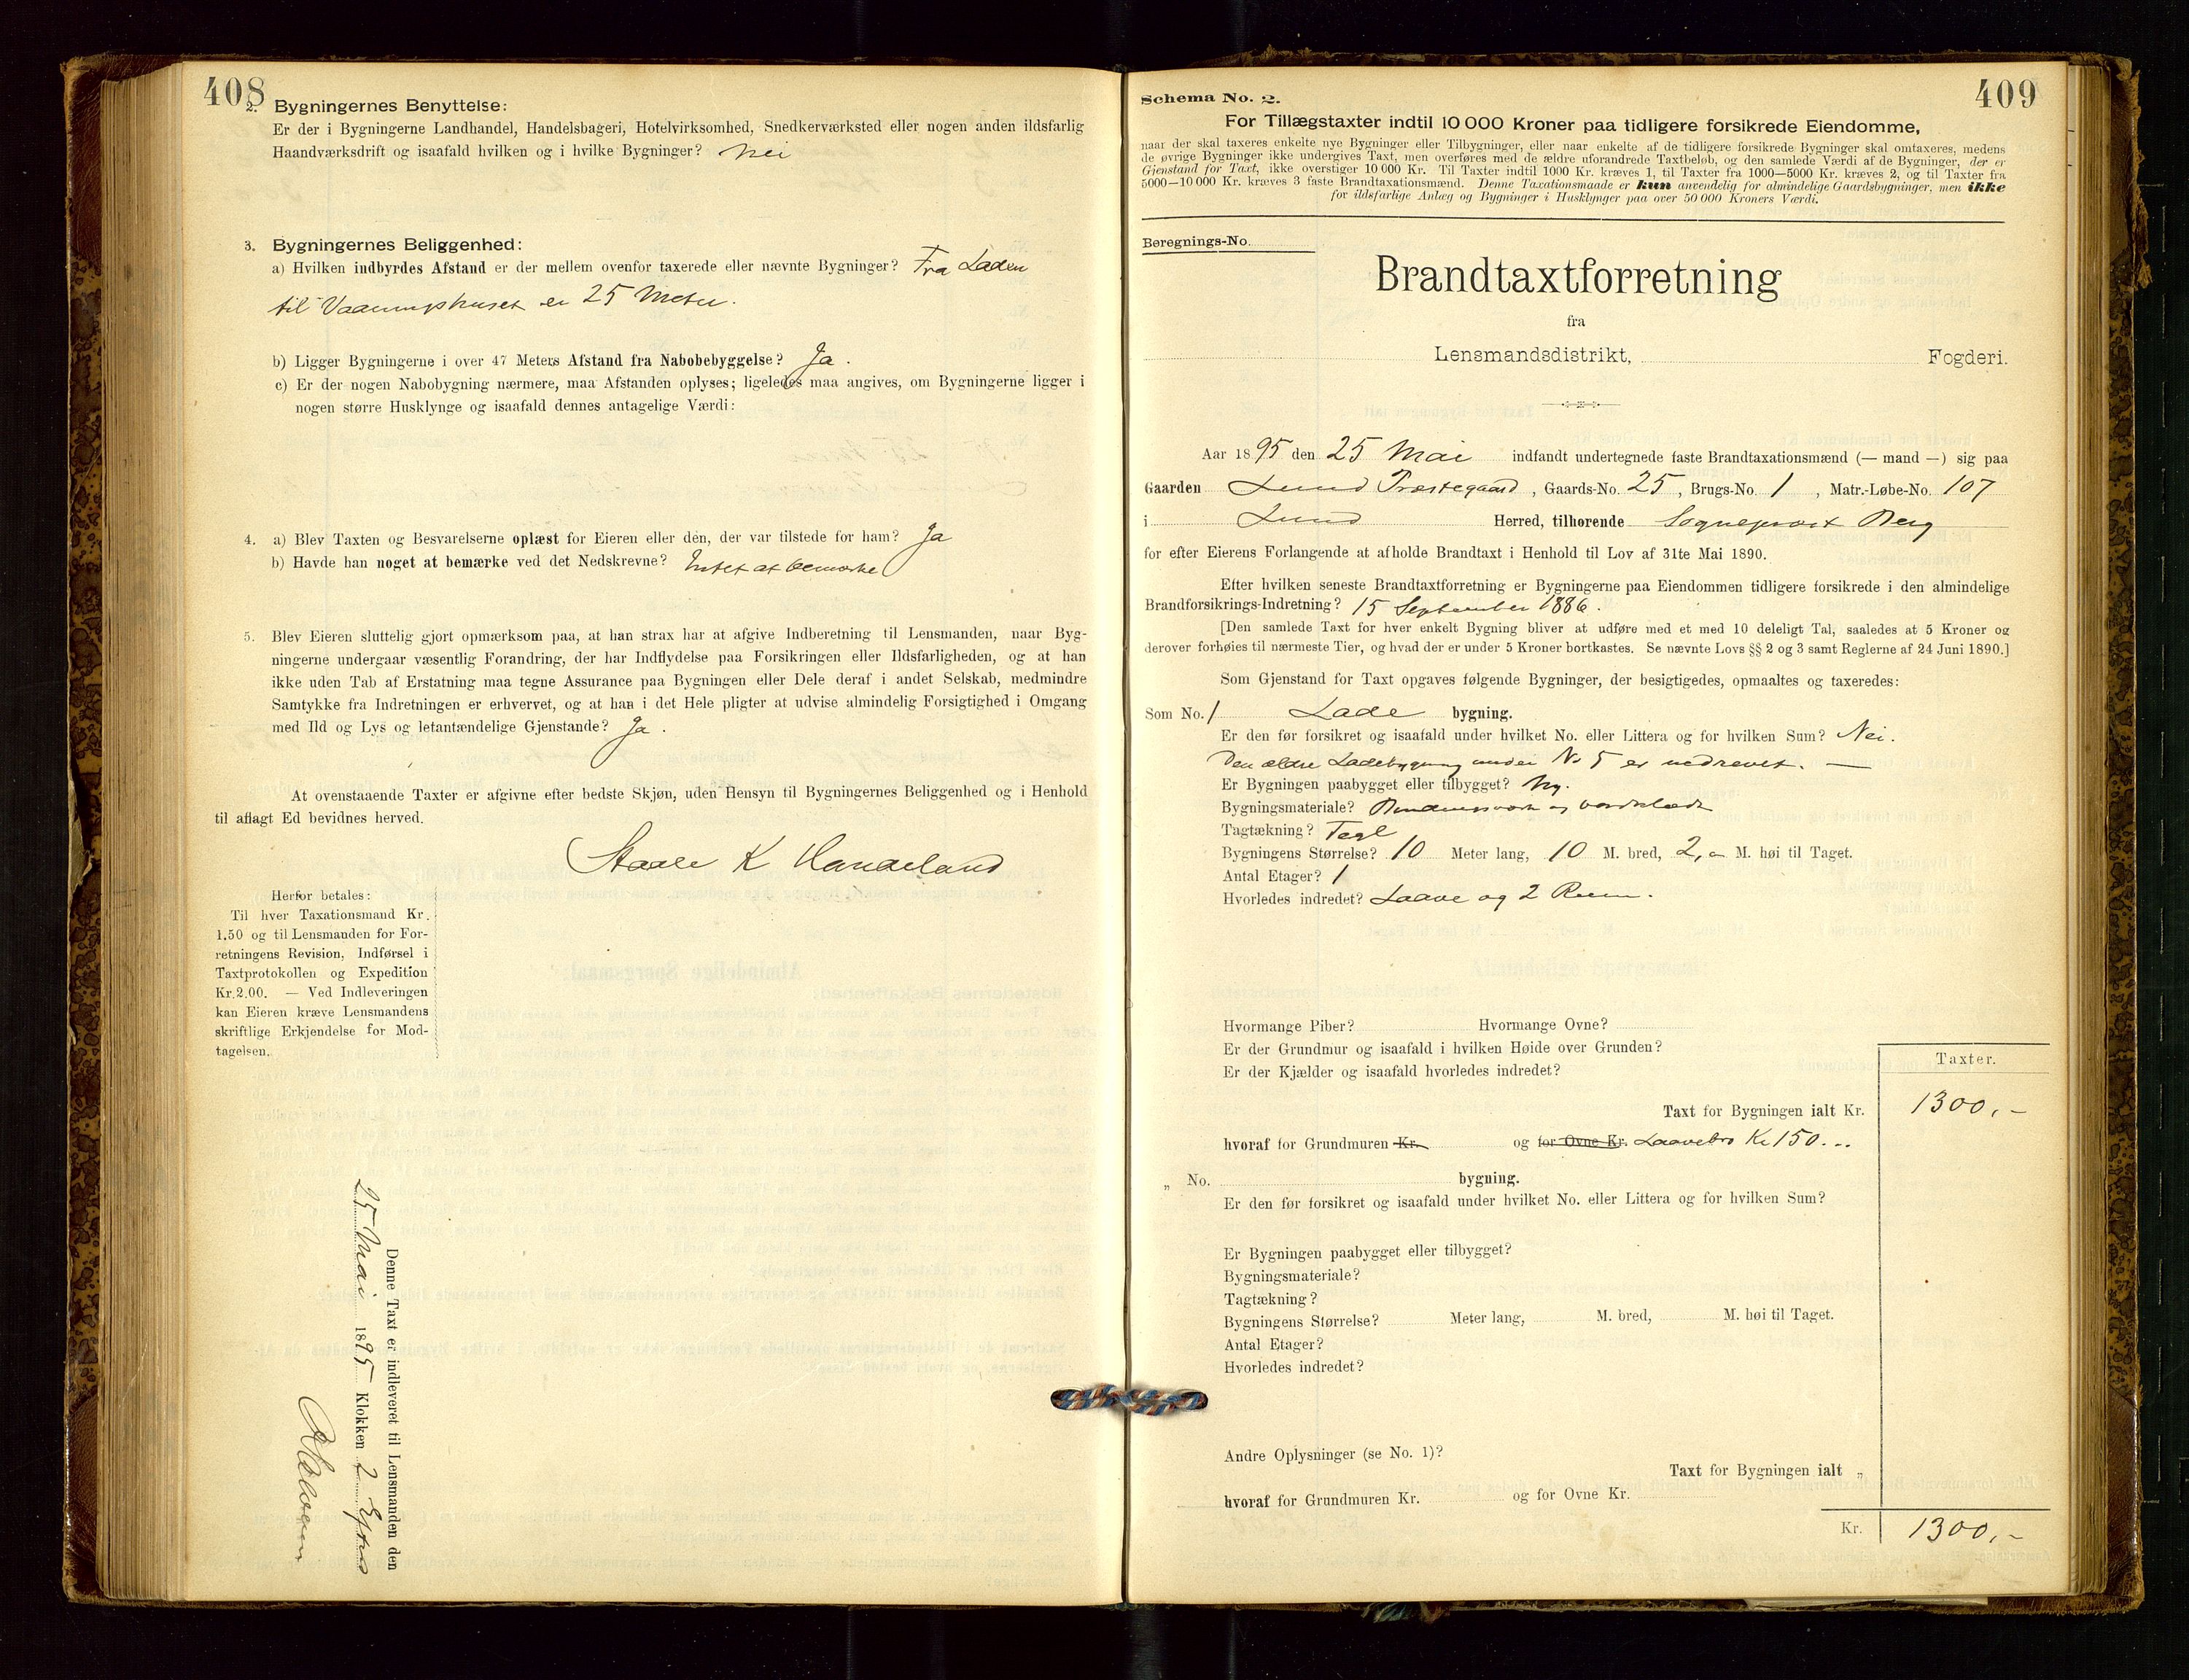 408
2. Bygningernes Benyttelse:
Er der i Bygningerne Landhandel, Handelsbageri, Hotelvirksomhed, Snedkerværksted eller nogen anden ildsfarlig
Haandværksdrift og isaafald hvilken og i hvilke Bygninger? Nei
3. Bygningernes Beliggenhed:
a) Hvilken indbyrdes Afstand er der mellem ovenfor taxerede eller nævnte Bygninger? Fra Laden
til Vaaningshuset er 25 Meter.
b) Ligger Bygningerne i over 47 Meters Afstand fra Nabobebyggelse? Ja.
c) Er der nogen Nabobygning nærmere, maa Afstanden oplyses; ligeledes maa angives, om Bygningerne ligger i
nogen større Husklynge og isaafald dennes antagelige Værdi:
4. a) Blev Taxten og Besvarelserne oplæst for Eieren eller den, der var tilstede for ham? Ja
b) Havde han noget at bemærke ved det Nedskrevne? Intet at bemærke
5. Blev Eieren sluttelig gjort opmærksom paa, at han strax har at afgive Indberetning til Lensmanden, naar Byg-
ningerne undergaar væsentlig Forandring, der har Indflydelse paa Forsikringen eller Ildsfarligheden, og at han
ikke uden Tab af Erstatning maa tegne Assurance paa Bygningen eller Dele deraf i andet Selskab, medmindre
Samtykke fra Indretningen er erhvervet, og at han i det Hele pligter at udvise almindelig Forsigtighed i Omgang
med Ild og Lys og letantændelige Gjenstande? Ja.
At ovenstaaende Taxter er afgivne efter bedste Skjøn, uden Hensyn til Bygningernes Beliggenhed og i Henhold
til aflagt Ed bevidnes herved.
Staale K Handeland
Herfor betales:
Til hver Taxationsmand Kr.
1.50 og til Lensmanden for For-
retningens Revision, Indførsel i
Taxtprotokollen og Expedition
Kr. 2.00. — Ved Indleveringen
kan Eieren kræve Lensmandens
skriftlige Erkjendelse for Mod-
tagelsen.
Denne Taxt er indleveret til Lensmanden den
25 Mai 1895 Klokken 2 Eftm
409
Schema No. 2.
For Tillægstaxter indtil 10 000 Kroner paa tidligere forsikrede Eiendomme,
naar der skal taxeres enkelte nye Bygninger eller Tilbygninger, eller naar enkelte af de tidligere forsikrede Bygninger skal omtaxeres, medens
de øvrige Bygninger ikke undergives Taxt, men overføres med de ældre uforandrede Taxtbeløb, og den samlede Værdi af de Bygninger, der er
Gjenstand for Taxt, ikke overstiger 10 000 Kr. Til Taxter indtil 1000 Kr. kræves 1, til Taxter fra 1000—5000 Kr. kræves 2, og til Taxter fra
5000—10 000 Kr. kræves 3 faste Brandtaxationsmænd. Denne Taxationsmaade er kun anvendelig for almindelige Gaardsbygninger, men ikke
for ildsfarlige Anlæg og Bygninger i Husklynger paa over 50 000 Kroners Værdi.
Beregnings-No.
Brandtaxtforretning
fra
Lensmandsdistrikt, Fogderi.
Aar 1895 den 25 Mai indfandt undertegnede faste Brandtaxationsmænd (— mand —) sig paa
Gaarden Lund Præstegaard, Gaards-No. 25, Brugs-No. 1, Matr.-Løbe-No. 107
i Lund Herred, tilhørende Sogneprest Berg
for efter Eierens Forlangende at afholde Brandtaxt i Henhold til Lov af 31te Mai 1890.
Efter hvilken seneste Brandtaxtforretning er Bygningerne paa Eiendommen tidligere forsikrede i den almindelige
Brandforsikrings-Indretning? 15 September 1886.
[Den samlede Taxt for hver enkelt Bygning bliver at udføre med et med 10 deleligt Tal, saaledes at 5 Kroner og
derover forhøies til nærmeste Tier, og hvad der er under 5 Kroner bortkastes. Se nævnte Lovs §§ 2 og 3 samt Reglerne af 24 Juni 1890.]
Som Gjenstand for Taxt opgaves følgende Bygninger, der besigtigedes, opmaaltes og taxeredes:
Som No. 1 Lade bygning.
Er den før forsikret og isaafald under hvilket No. eller Littera og for hvilken Sum? Nei.
Den ældre Ladebygning under No 5 er nedrevet. —
Er Bygningen paabygget eller tilbygget? Ny.
Bygningsmateriale? Bindingsværk og bordklædt
Tagtækning? Tegl
Bygningens Størrelse? 10 Meter lang, 10 M. bred, 2, M. høi til Taget.
Antal Etager? 1
Hvorledes indredet? Laave og 2 Rum.
Hvormange Piber? Hvormange Ovne?
Er der Grundmur og isaafald i hvilken Høide over Grunden?
Er der Kjælder og isaafald hvorledes indredet?
Taxter.
Taxt for Bygningen ialt Kr. 1300,-
hvoraf for Grundmuren Kr. og for Ovne Kr. Laavebro Kr 150.-
„ No. bygning.
Er den før forsikret og isaafald under hvilket No. eller Littera og for hvilken Sum?
Er Bygningen paabygget eller tilbygget?
Bygningsmateriale?
Tagtækning?
Bygningens Størrelse? Meter lang, M. bred, M. høi til Taget.
Antal Etager?
Hvorledes indredet?
Andre Oplysninger (se No. 1)?
Taxt for Bygningen ialt „
hvoraf for Grundmuren Kr. og for Ovne Kr.
Kr. 1300,-